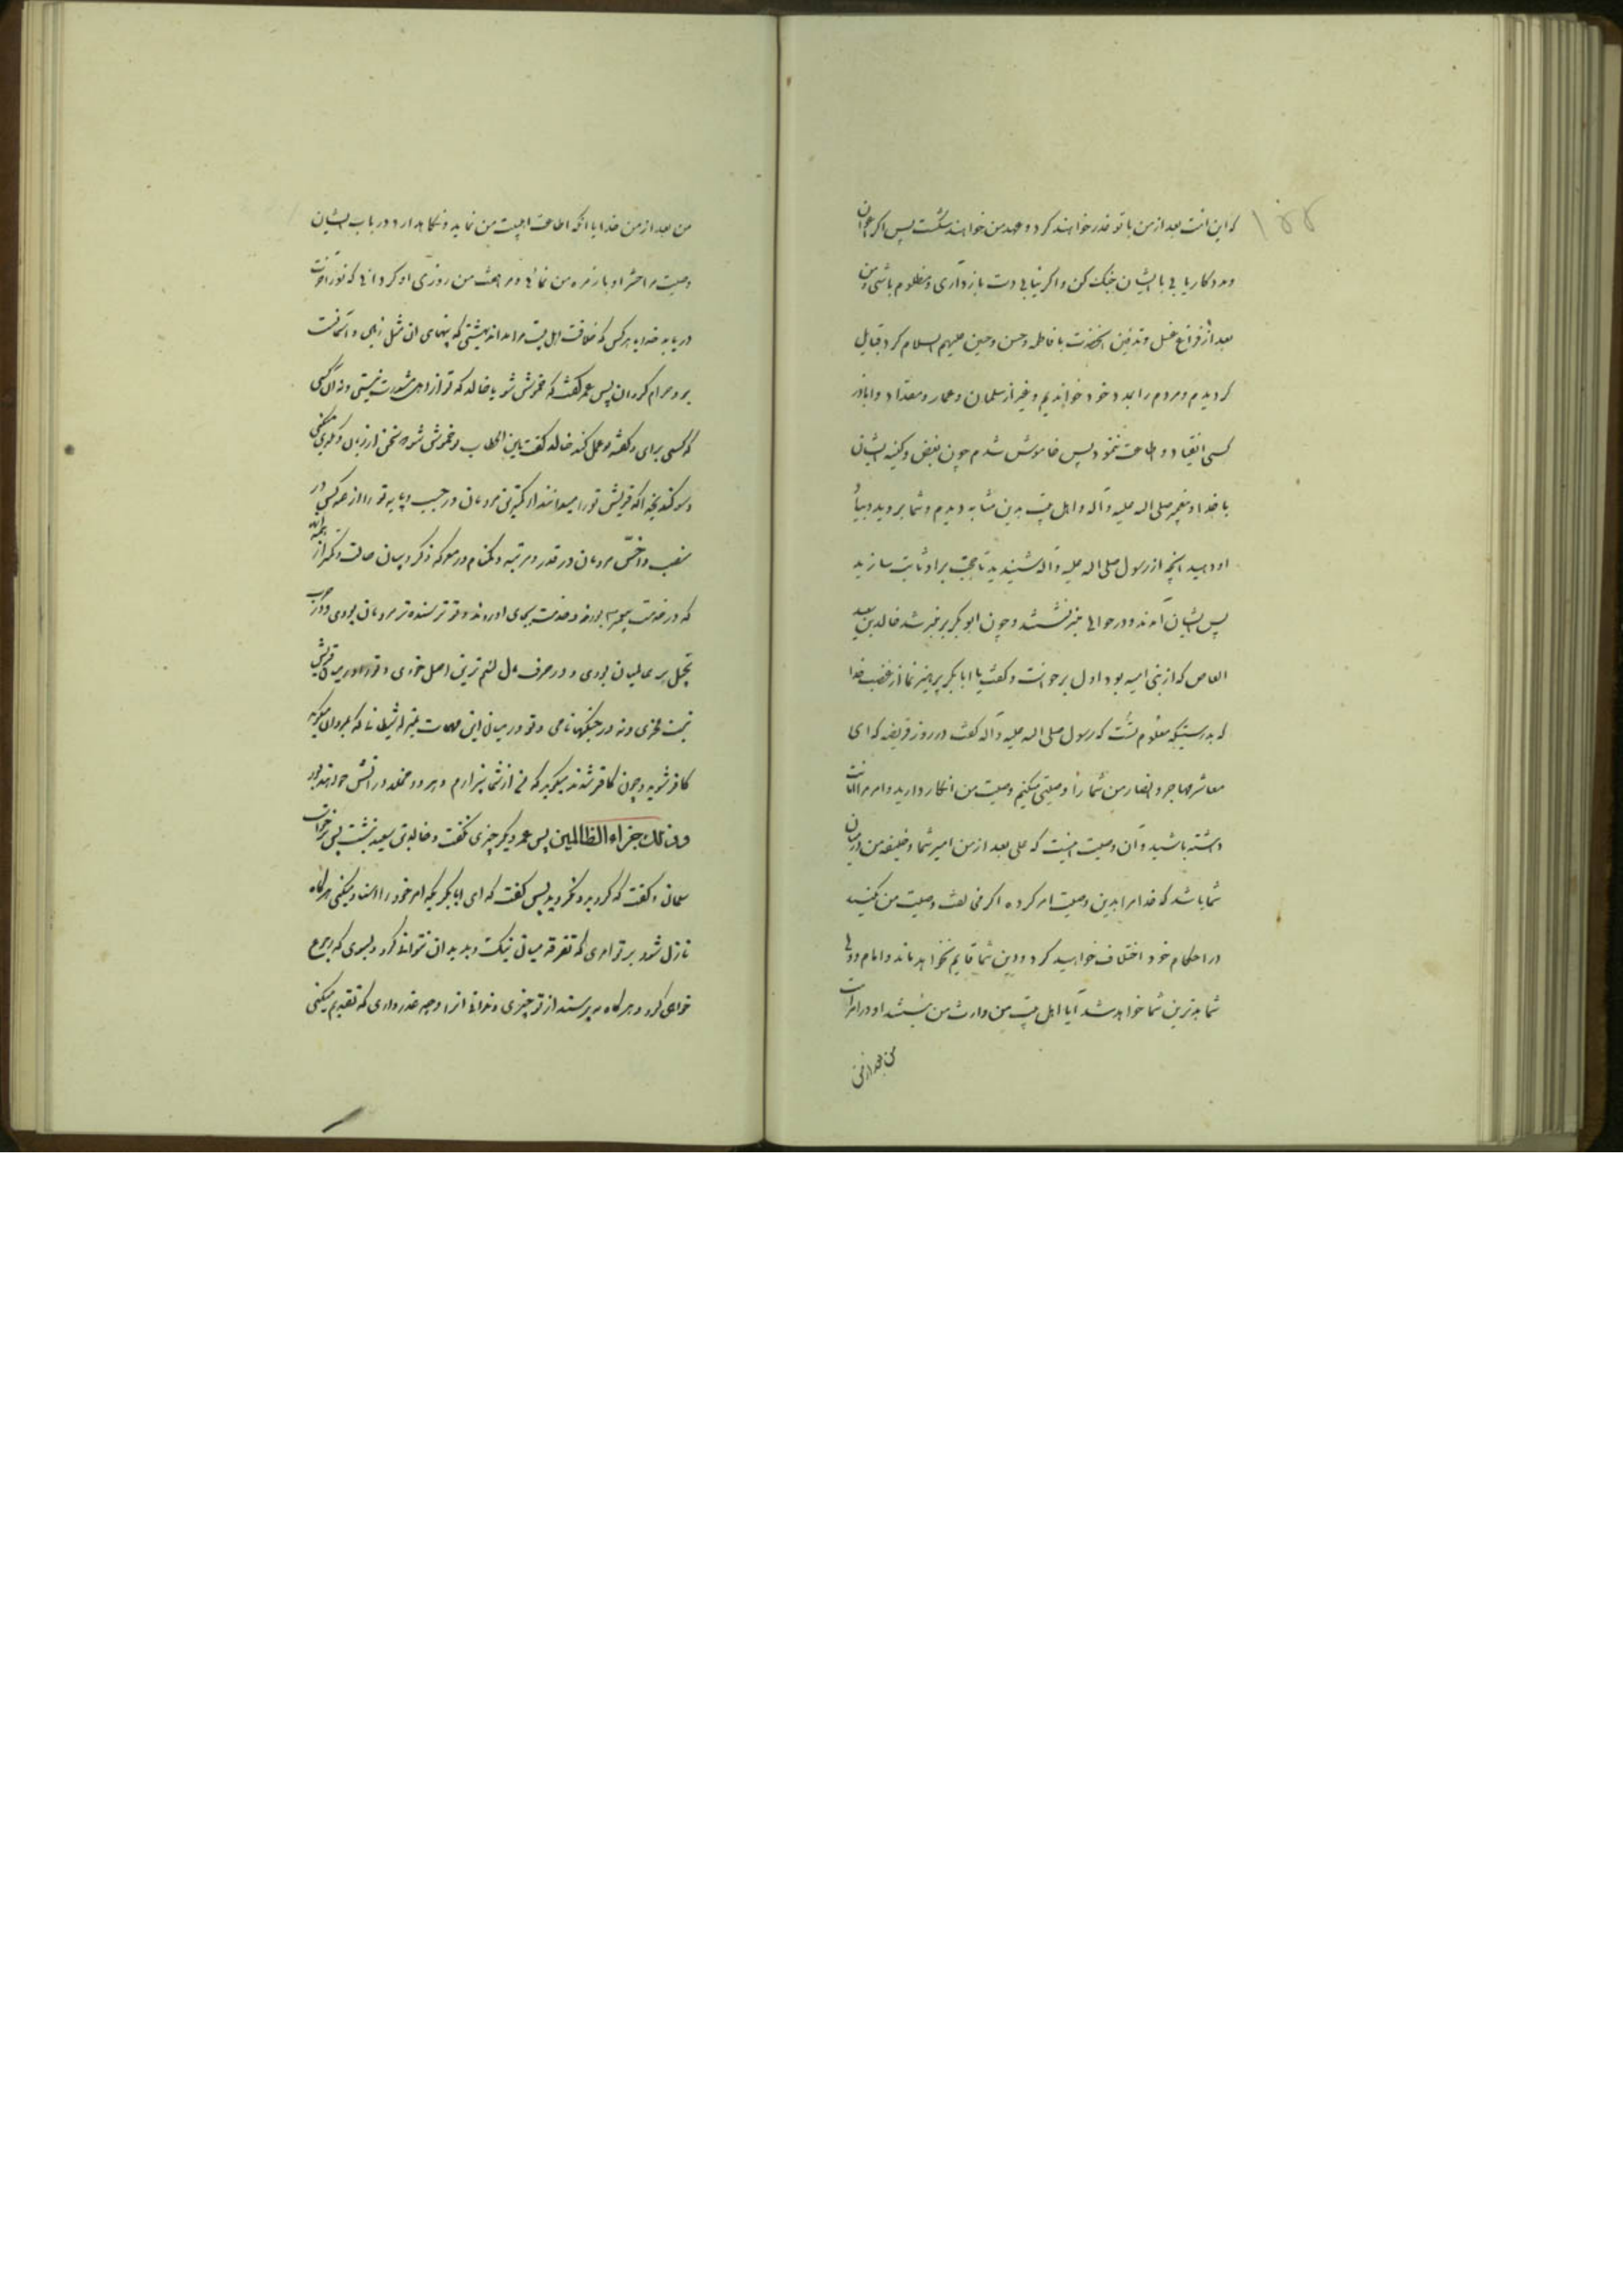 ۱۵۵
که این امت بعد از من با تو غدر خواهند کرد و عهد من خواهند شکست پس اگر اعوان
و مددکار یابی با ایشان جنگ کن و اگر نیابی دست باز داری و مظلوم باشی و من
بعد از فراغ غسل و تدفین آنحضرت با فاطمه و حسن و حسین علیهم السلام کرد قبایل
گردیدم و مردم را بمدد خود خواندیم و غیر از سلمان و عمار و مقداد و اباذر
کسی انقیاد و اطاعت ننمود پس خاموش شدم چون بغض و کینه ایشان
با خدا و پیغمبر صلی الله علیه و آله و اهل بیت بدین مثابه دیدم و شما بروید و بیاد
او دهید آنچه از رسول صلی الله علیه و آله شنیدید تا حجت بر او ثابت سازید
پس ایشان آمدند و در حوالی منبر نشستند و چون ابوبکر بر منبر شد خالد بن سعید
العاص که از بنی امیه بود اول برخواست و گفت یا ابابکر پرهیز نما از غضب خدا
که بدرستیکه معلوم تست که رسول صلی الله علیه و آله گفت در روز قریضه که ای
معاشر مهاجر و انصار من شما را وصیتی میکنم وصیت من انکار دارید و امر مرا امانت
داشته باشید و آن وصیت اینست که علی بعد از من امیر شما و خلیفه من در میان
شما باشد که خدا مرا بدین وصیت امر کرده اگر مخالفت وصیت من کنید
در احکام خود اختلاف خواهید کرد و دین شما قایم نخواهد ماند و امام و والی
شما بدترین شما خواهد شد آیا اهل بیت من وارث من نیستند او در امرات
من بعد از من
من بعد از من خدایا آنکه اطاعت اهلبیت من نماید و نگاهدارد در باب ایشان
وصیت مرا حشر او با زمره من نمائی و مرافقت من روزی او گردانی که نور آخرت
دریابد خدایا هر کس که خلافت اهل بیت مرا بهشتی که پهنای آن مثل زمین و آسمانست
برو حرام گردان پس عمر گفت که خموش شو یا خالد که تو از اهل مشورت نیستی و نه آن کسی
که کسی برای و گفته تو عمل کند خالد گفت یابن الخطاب تو خموش شو که سخن از زبان دیگری میکنی
و سوگند بخدا که قریش تو را میدانند از کمترین مردمان در حسب و پایه تو را از همه کسی در
منصب و اخس مردمان در قدر و مرتبه و گمنام در معرکه ذکر و بیان حالت و کمتر از همه
که در خدمت پیغمبر بودند و خدمت بجای آوردند و تو ترسنده تر مردمان بودی در حرب
و در صرف مال لئیم ترین اصل خودی و تو را در میان قریش
نیست فخری و نه در جنگها نامی و تو در میان این مهمات بمنزله شیطانی که بمردمان میگوید
کافر شوید و چون کافر شدند میگوید که من از شما بیزارم و هر دو مخلد در آتش خواهند بود
وذلك جزاء الظالمین پس عمر دیگر چیزی نگفت و خالد بن سعید بنشست پس برخاست
سلمان و گفت که کردید و نکردید پس گفت که ای ابابکر بکه امر خود را اسناد میکنی هرگاه
نازل شود بر تو امری که تفرقه میان نیک و بد بدان نتوانی کرد و بسوی که رجوع
خواهی کرد و هرگاه بپرسند از تو چیزی و ندانی آنرا و چه عذر داری که تقدیم میکنی